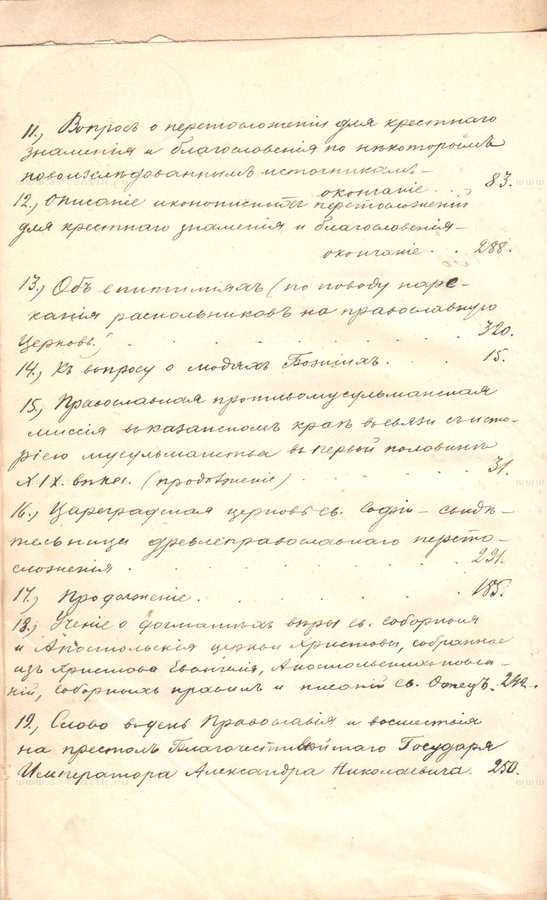 11.) Вопросъ о перстосложеніи для крестнаго
знаменія и благословенія по нѣкоторымъ
новоизслѣдованнымъ источникамъ –
окончаніе . . , 83.
12.) Описаніе иконописныхъ перстосложеній
для крестнаго знаменія и благословенія –
окончаніе . . 288.
13.) Объ епитиміяхъ (по поводу наре-
канія раскольниковъ на православную
Церковь.) . . . . . 320.
14.) Къ вопросу о людяхъ Божіихъ. . . . 15.
15.) Православная противомусульманская
миссія въ казанскомъ краѣ въ связи съ исто-
ріею мусульманства въ первой половинѣ
XIX. вѣка. (продолженіе) . . . . 31.
16.) Цареградская церковь св. Софіи – свидѣ-
тельница древлеправославнаго персто-
сложенія . . . . . 291.
17.) Продолженіе . . . . . 185.
18.) Ученіе о догматѣхъ вѣры св. соборныя
и Апостольскія церкви Христовы, собранное
изъ Христова Евангелія, Апостольскихъ посла-
ній, соборныхъ правилъ и писаній св. Отецъ.
19.) Слово въ день Православія и восшествія
на престолъ Благочестивѣйшаго Государя
Императора Александра Николаевича. 250.